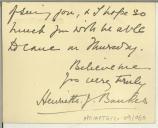 seeing you, & I hope so
much you will be able
to come on Thursday.
Believe me
yrs very truly
Henrietta J. Bankes